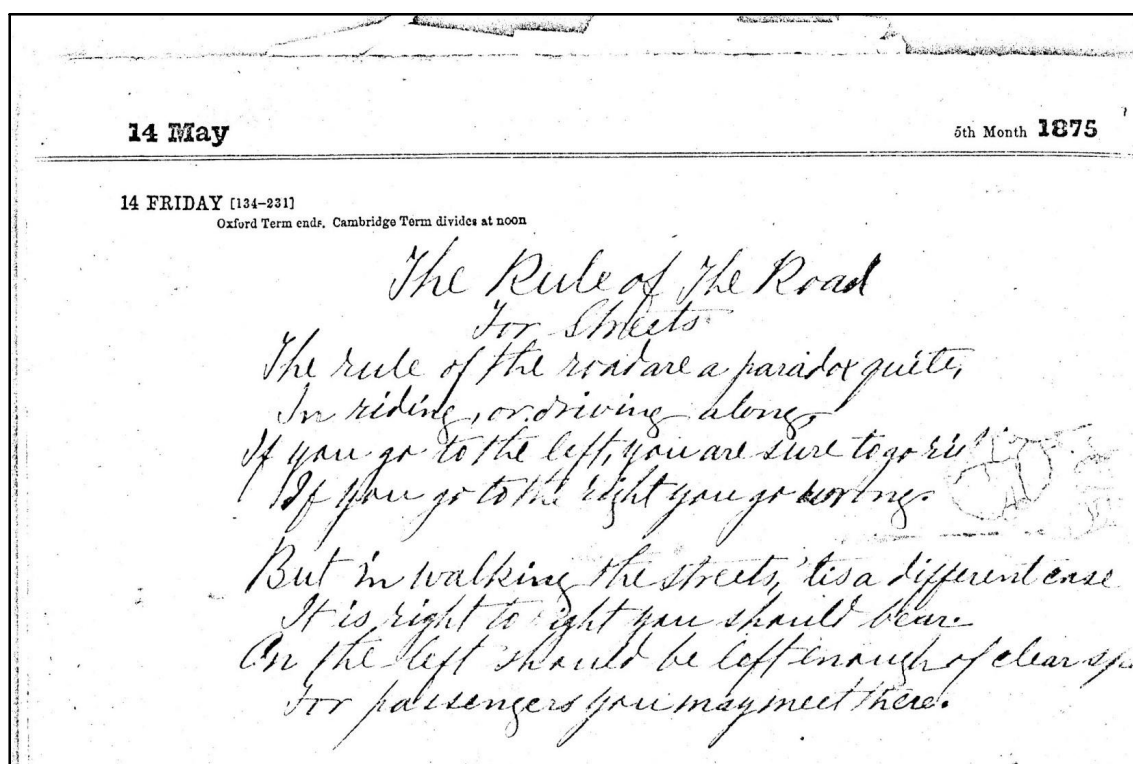 14 May
5th Month 1875
14 FRIDAY [134-231]
Oxford Term ends. Cambridge Term divides at noon
The Rule of The Road
For Streets
The rule of the road are a paradox quite,
In riding, or driving along,
If you go to the left, you are sure to go
If you go to the right you go wrong.
But in walking the streets, 'tis a different case
It is right to right you should bear
On the left should be left enough of clear
For passengers you may meet there.